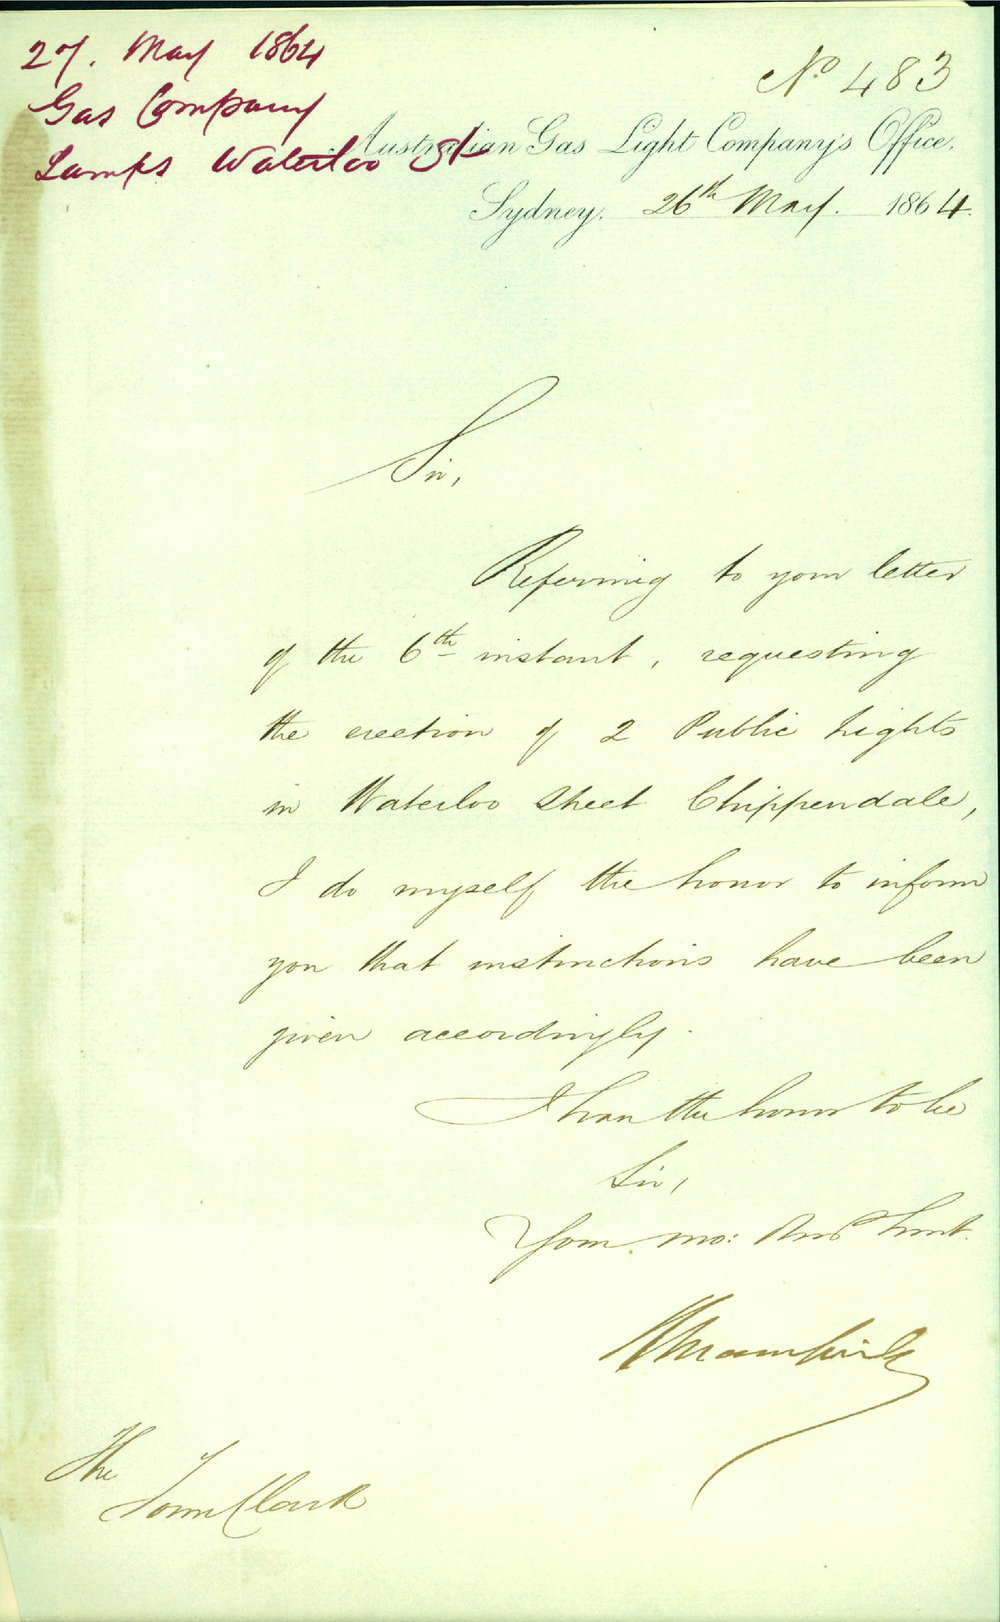 27. May 1864
Gas Company
Lamps Waterloo St
No 483
Australian Gas Light Company's Office.
Sydney. 26th May. 1864.
Sir,
Referring to your letter
of the 6th instant, requesting
the erection of 2 Public Lights
in Waterloo Street Chippendale,
I do myself the honor to inform
you that instructions have been
given accordingly.
I have the honor to be
Sir,
Your mo: Servt.
The
Town Clerk